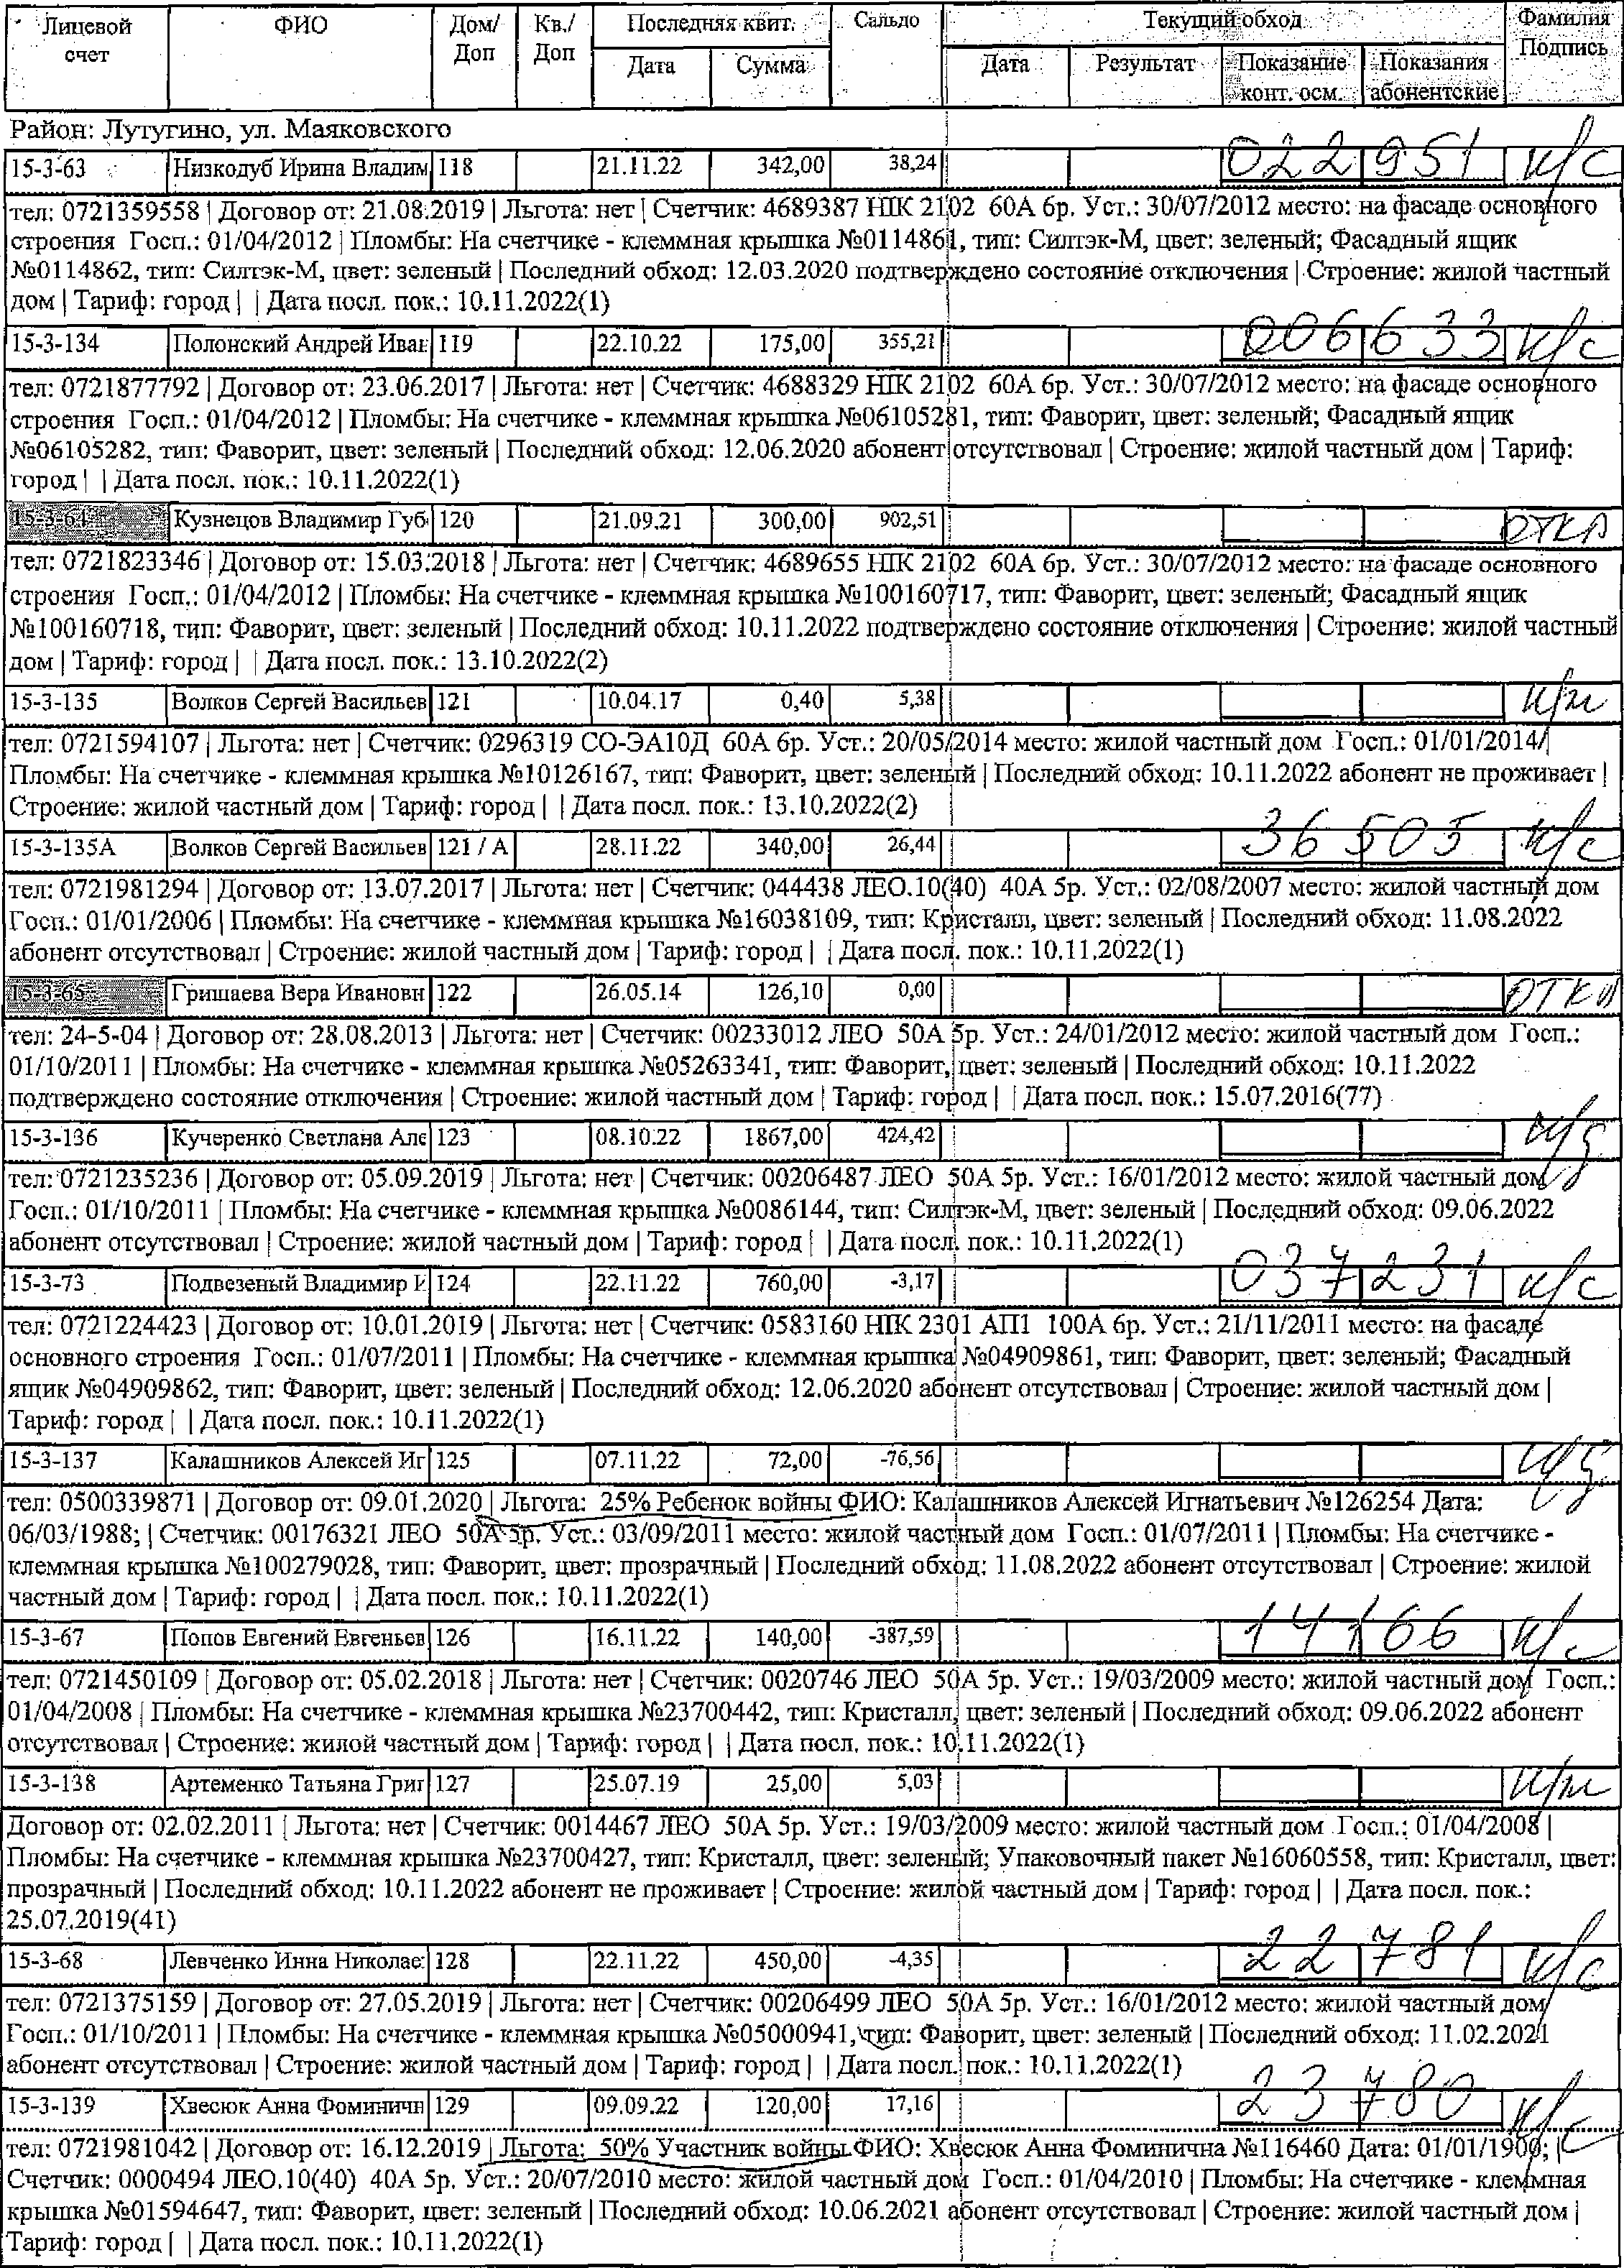 Лицевой счет | ФИО | Дом/ Доп | Кв./ Доп | Последняя квит. | Сальдо | Текущий обход | Фамилия Подпись
Дата | Сумма | Дата | Результат | Показание конт. осм. | Показания абонентские
Район: Лутугино, ул. Маяковского
15-3-63 Низкодуб Ирина Владим 118 21.11.22 342,00 38,24 022951 н/с
тел: 0721359558 | Договор от: 21.08.2019 | Льгота: нет | Счетчик: 4689387 НІК 2102 60А 6р. Уст.: 30/07/2012 место: на фасаде основного
строения Госп.: 01/04/2012 | Пломбы: На счетчике - клеммная крышка №0114861, тип: Силтэк-М, цвет: зеленый; Фасадный ящик
№0114862, тип: Силтэк-М, цвет: зеленый | Последний обход: 12.03.2020 подтверждено состояние отключения | Строение: жилой частный
дом | Тариф: город | | Дата посл. пок.: 10.11.2022(1)
15-3-134 Полонский Андрей Иван 119 22.10.22 175,00 355,21 006633 н/с
тел: 0721877792 | Договор от: 23.06.2017 | Льгота: нет | Счетчик: 4688329 НІК 2102 60А 6р. Уст.: 30/07/2012 место: на фасаде основного
строения Госп.: 01/04/2012 | Пломбы: На счетчике - клеммная крышка №06105281, тип: Фаворит, цвет: зеленый; Фасадный ящик
№06105282, тип: Фаворит, цвет: зеленый | Последний обход: 12.06.2020 абонент отсутствовал | Строение: жилой частный дом | Тариф:
город | | Дата посл. пок.: 10.11.2022(1)
15-3-64 Кузнецов Владимир Губ 120 21.09.21 300,00 902,51 откл
тел: 0721823346 | Договор от: 15.03.2018 | Льгота: нет | Счетчик: 4689655 НІК 2102 60А 6р. Уст.: 30/07/2012 место: на фасаде основного
строения Госп.: 01/04/2012 | Пломбы: На счетчике - клеммная крышка №100160717, тип: Фаворит, цвет: зеленый; Фасадный ящик
№100160718, тип: Фаворит, цвет: зеленый | Последний обход: 10.11.2022 подтверждено состояние отключения | Строение: жилой частный
дом | Тариф: город | | Дата посл. пок.: 13.10.2022(2)
15-3-135 Волков Сергей Васильев 121 10.04.17 0,40 5,38
тел: 0721594107 | Льгота: нет | Счетчик: 0296319 СО-ЭА10Д 60А 6р. Уст.: 20/05/2014 место: жилой частный дом Госп.: 01/01/2014 |
Пломбы: На счетчике - клеммная крышка №10126167, тип: Фаворит, цвет: зеленый | Последний обход: 10.11.2022 абонент не проживает |
Строение: жилой частный дом | Тариф: город | | Дата посл. пок.: 13.10.2022(2)
15-3-135А Волков Сергей Васильев 121 / А 28.11.22 340,00 26,44 36505 н/с
тел: 0721981294 | Договор от: 13.07.2017 | Льгота: нет | Счетчик: 044438 ЛЕО.10(40) 40А 5р. Уст.: 02/08/2007 место: жилой частный дом
Госп.: 01/01/2006 | Пломбы: На счетчике - клеммная крышка №16038109, тип: Кристалл, цвет: зеленый | Последний обход: 11.08.2022
абонент отсутствовал | Строение: жилой частный дом | Тариф: город | | Дата посл. пок.: 10.11.2022(1)
15-3-65 Гришаева Вера Ивановн 122 26.05.14 126,10 0,00 откл
тел: 24-5-04 | Договор от: 28.08.2013 | Льгота: нет | Счетчик: 00233012 ЛЕО 50А 5р. Уст.: 24/01/2012 место: жилой частный дом Госп.:
01/10/2011 | Пломбы: На счетчике - клеммная крышка №05263341, тип: Фаворит, цвет: зеленый | Последний обход: 10.11.2022
подтверждено состояние отключения | Строение: жилой частный дом | Тариф: город | | Дата посл. пок.: 15.07.2016(77)
15-3-136 Кучеренко Светлана Але 123 08.10.22 1867,00 424,42
тел: 0721235236 | Договор от: 05.09.2019 | Льгота: нет | Счетчик: 00206487 ЛЕО 50А 5р. Уст.: 16/01/2012 место: жилой частный дом
Госп.: 01/10/2011 | Пломбы: На счетчике - клеммная крышка №0086144, тип: Силтэк-М, цвет: зеленый | Последний обход: 09.06.2022
абонент отсутствовал | Строение: жилой частный дом | Тариф: город | | Дата посл. пок.: 10.11.2022(1)
15-3-73 Подвезеный Владимир И 124 22.11.22 760,00 -3,17 037231 н/с
тел: 0721224423 | Договор от: 10.01.2019 | Льгота: нет | Счетчик: 0583160 НІК 2301 АП1 100А 6р. Уст.: 21/11/2011 место: на фасаде
основного строения Госп.: 01/07/2011 | Пломбы: На счетчике - клеммная крышка №04909861, тип: Фаворит, цвет: зеленый; Фасадный
ящик №04909862, тип: Фаворит, цвет: зеленый | Последний обход: 12.06.2020 абонент отсутствовал | Строение: жилой частный дом |
Тариф: город | | Дата посл. пок.: 10.11.2022(1)
15-3-137 Калашников Алексей Иг 125 07.11.22 72,00 -76,56
тел: 0500339871 | Договор от: 09.01.2020 | Льгота: 25% Ребенок войны ФИО: Калашников Алексей Игнатьевич №126254 Дата:
06/03/1988; | Счетчик: 00176321 ЛЕО 50А 5р. Уст.: 03/09/2011 место: жилой частный дом Госп.: 01/07/2011 | Пломбы: На счетчике -
клеммная крышка №100279028, тип: Фаворит, цвет: прозрачный | Последний обход: 11.08.2022 абонент отсутствовал | Строение: жилой
частный дом | Тариф: город | | Дата посл. пок.: 10.11.2022(1)
15-3-67 Попов Евгений Евгеньев 126 16.11.22 140,00 -387,59 14166 н/с
тел: 0721450109 | Договор от: 05.02.2018 | Льгота: нет | Счетчик: 0020746 ЛЕО 50А 5р. Уст.: 19/03/2009 место: жилой частный дом Госп.:
01/04/2008 | Пломбы: На счетчике - клеммная крышка №23700442, тип: Кристалл, цвет: зеленый | Последний обход: 09.06.2022 абонент
отсутствовал | Строение: жилой частный дом | Тариф: город | | Дата посл. пок.: 10.11.2022(1)
15-3-138 Артеменко Татьяна Григ 127 25.07.19 25,00 5,03
Договор от: 02.02.2011 | Льгота: нет | Счетчик: 0014467 ЛЕО 50А 5р. Уст.: 19/03/2009 место: жилой частный дом Госп.: 01/04/2008 |
Пломбы: На счетчике - клеммная крышка №23700427, тип: Кристалл, цвет: зеленый; Упаковочный пакет №16060558, тип: Кристалл, цвет:
прозрачный | Последний обход: 10.11.2022 абонент не проживает | Строение: жилой частный дом | Тариф: город | | Дата посл. пок.:
25.07.2019(41)
15-3-68 Левченко Инна Николае 128 22.11.22 450,00 -4,35 22781 н/с
тел: 0721375159 | Договор от: 27.05.2019 | Льгота: нет | Счетчик: 00206499 ЛЕО 50А 5р. Уст.: 16/01/2012 место: жилой частный дом
Госп.: 01/10/2011 | Пломбы: На счетчике - клеммная крышка №05000941, тип: Фаворит, цвет: зеленый | Последний обход: 11.02.2021
абонент отсутствовал | Строение: жилой частный дом | Тариф: город | | Дата посл. пок.: 10.11.2022(1)
15-3-139 Хвесюк Анна Фоминичн 129 09.09.22 120,00 17,16 23780 н/с
тел: 0721981042 | Договор от: 16.12.2019 | Льгота: 50% Участник войны ФИО: Хвесюк Анна Фоминична №116460 Дата: 01/01/1900; |
Счетчик: 0000494 ЛЕО.10(40) 40А 5р. Уст.: 20/07/2010 место: жилой частный дом Госп.: 01/04/2010 | Пломбы: На счетчике - клеммная
крышка №01594647, тип: Фаворит, цвет: зеленый | Последний обход: 10.06.2021 абонент отсутствовал | Строение: жилой частный дом |
Тариф: город | | Дата посл. пок.: 10.11.2022(1)